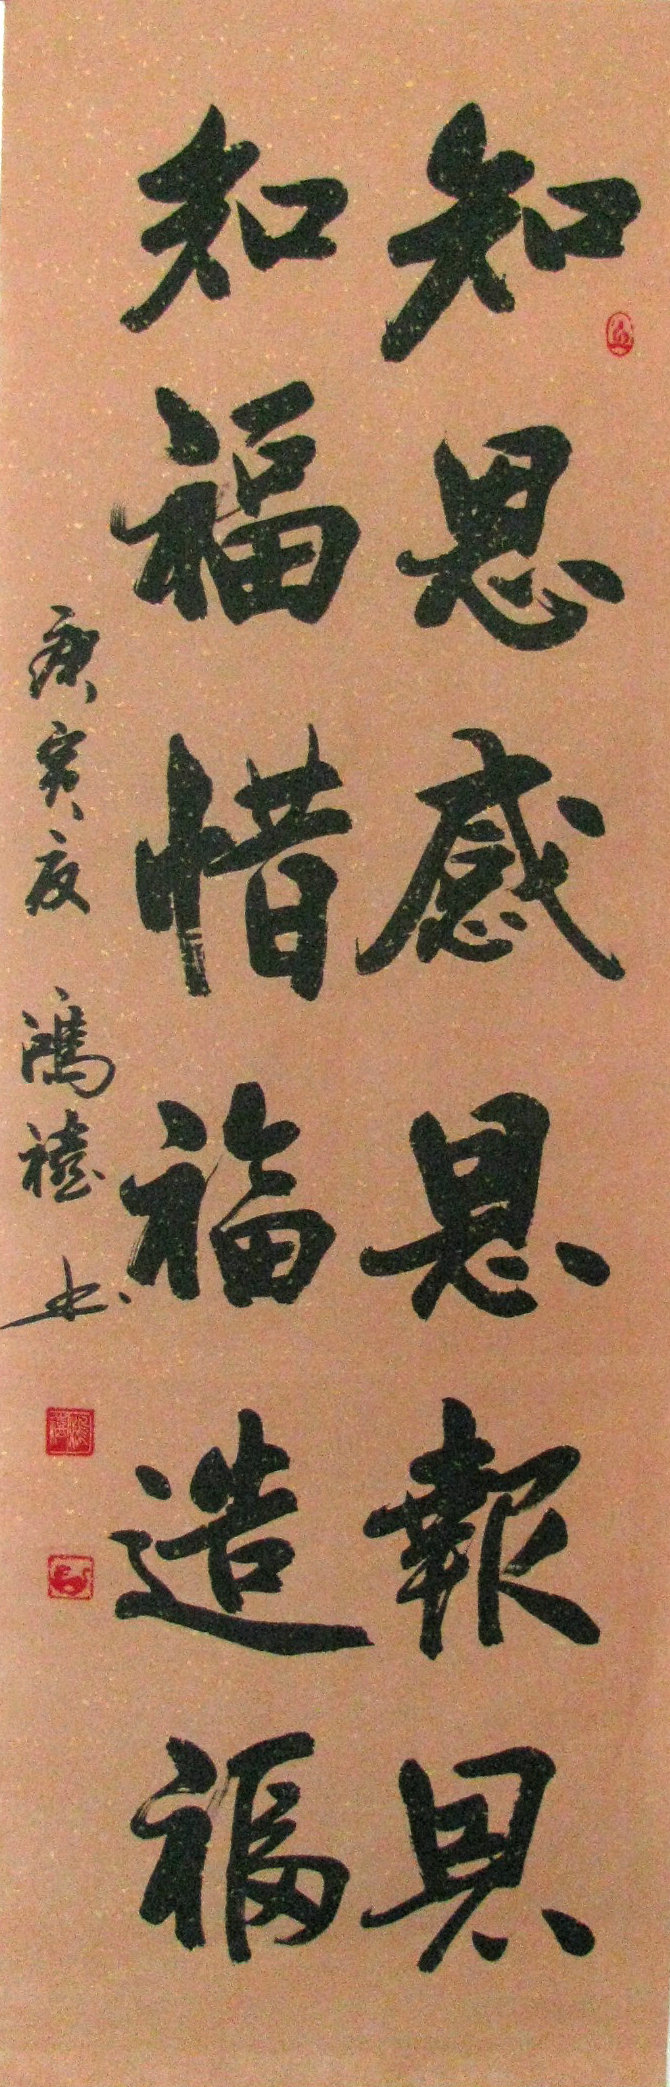 知恩感恩報恩
知福惜福造福
庚寅夏 鴻禧书